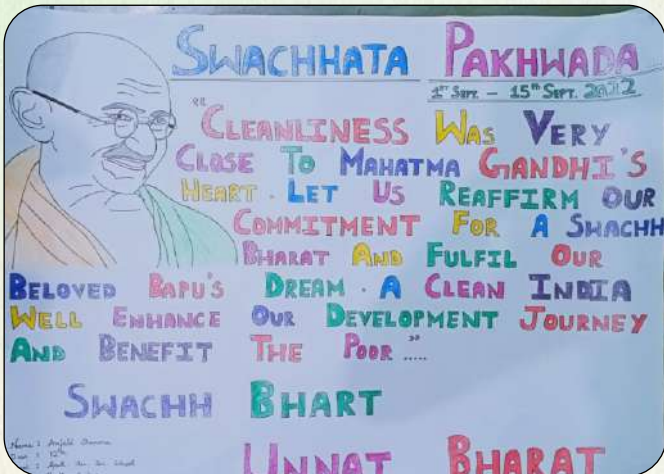 SWACHHATA PAKHWADA
1ST SEPT. – 15TH SEPT. 2022
"CLEANLINESS WAS VERY
CLOSE TO MAHATMA GANDHI'S
HEART. LET US REAFFIRM OUR
COMMITMENT FOR A SWACHH
BHARAT AND FULFIL OUR
BELOVED BAPU'S DREAM. A CLEAN INDIA
WELL ENHANCE OUR DEVELOPMENT JOURNEY
AND BENEFIT THE POOR ....."
SWACHH BHART
UNNAT BHARAT
Name : Anjali
: 12th